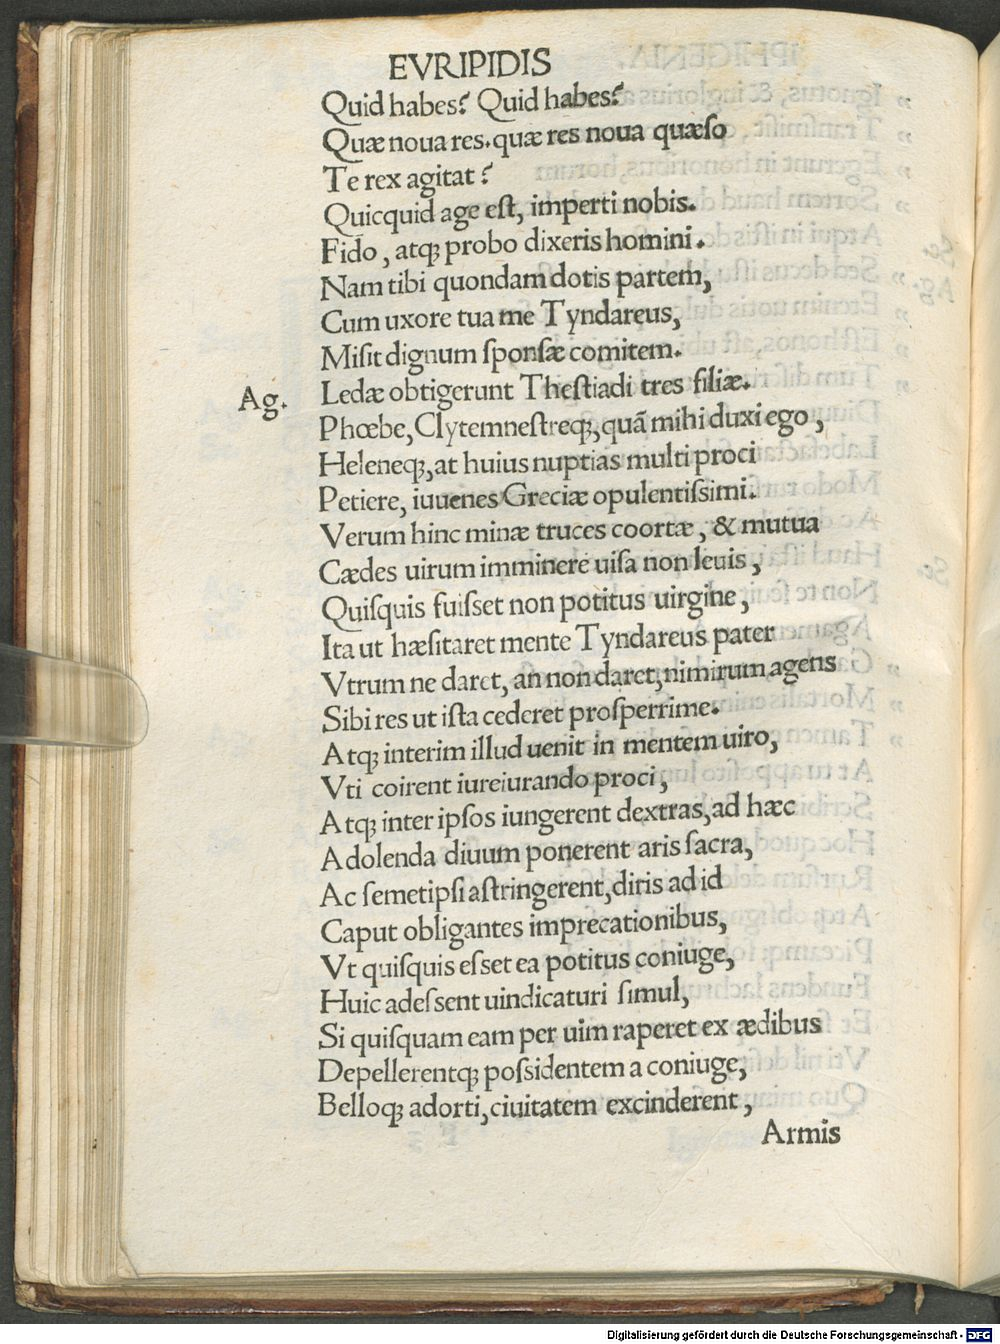 EVRIPIDIS
Quid habes? Quid habes?
Quæ noua res. quæ res noua quæſo
Te rex agitat?
Quicquid age eſt, imperti nobis.
Fido, atqꝫ probo dixeris homini.
Nam tibi quondam dotis partem,
Cum uxore tua me Tyndareus,
Miſit dignum ſponſæ comitem.
Ag. Ledæ obtigerunt Theſtiadi tres filiæ.
Phœbe, Clytemneſtreqꝫ, quã mihi duxi ego,
Heleneqꝫ, at huius nuptias multi proci
Petiere, iuuenes Greciæ opulentiſsimi.
Verum hinc minæ truces coortæ, & mutua
Cædes uirum imminere uiſa non leuis,
Quiſquis fuiſset non potitus uirgine,
Ita ut hæſitaret mente Tyndareus pater
Vtrum ne daret, an non daret, nimirum agens
Sibi res ut iſta cederet proſperrime.
Atqꝫ interim illud uenit in mentem uiro,
Vti coirent iureiurando proci,
Atqꝫ inter ipſos iungerent dextras, ad hæc
Adolenda diuum ponerent aris ſacra,
Ac ſemetipſi aſtringerent, diris ad id
Caput obligantes imprecationibus,
Vt quiſquis eſset ea potitus coniuge,
Huic adeſsent uindicaturi ſimul,
Si quiſquam eam per uim raperet ex ædibus
Depellerentqꝫ poſsidentem a coniuge,
Belloqꝫ adorti, ciuitatem excinderent,
Armis
Digitalisierung gefördert durch die Deutsche Forschungsgemeinschaft - DFG